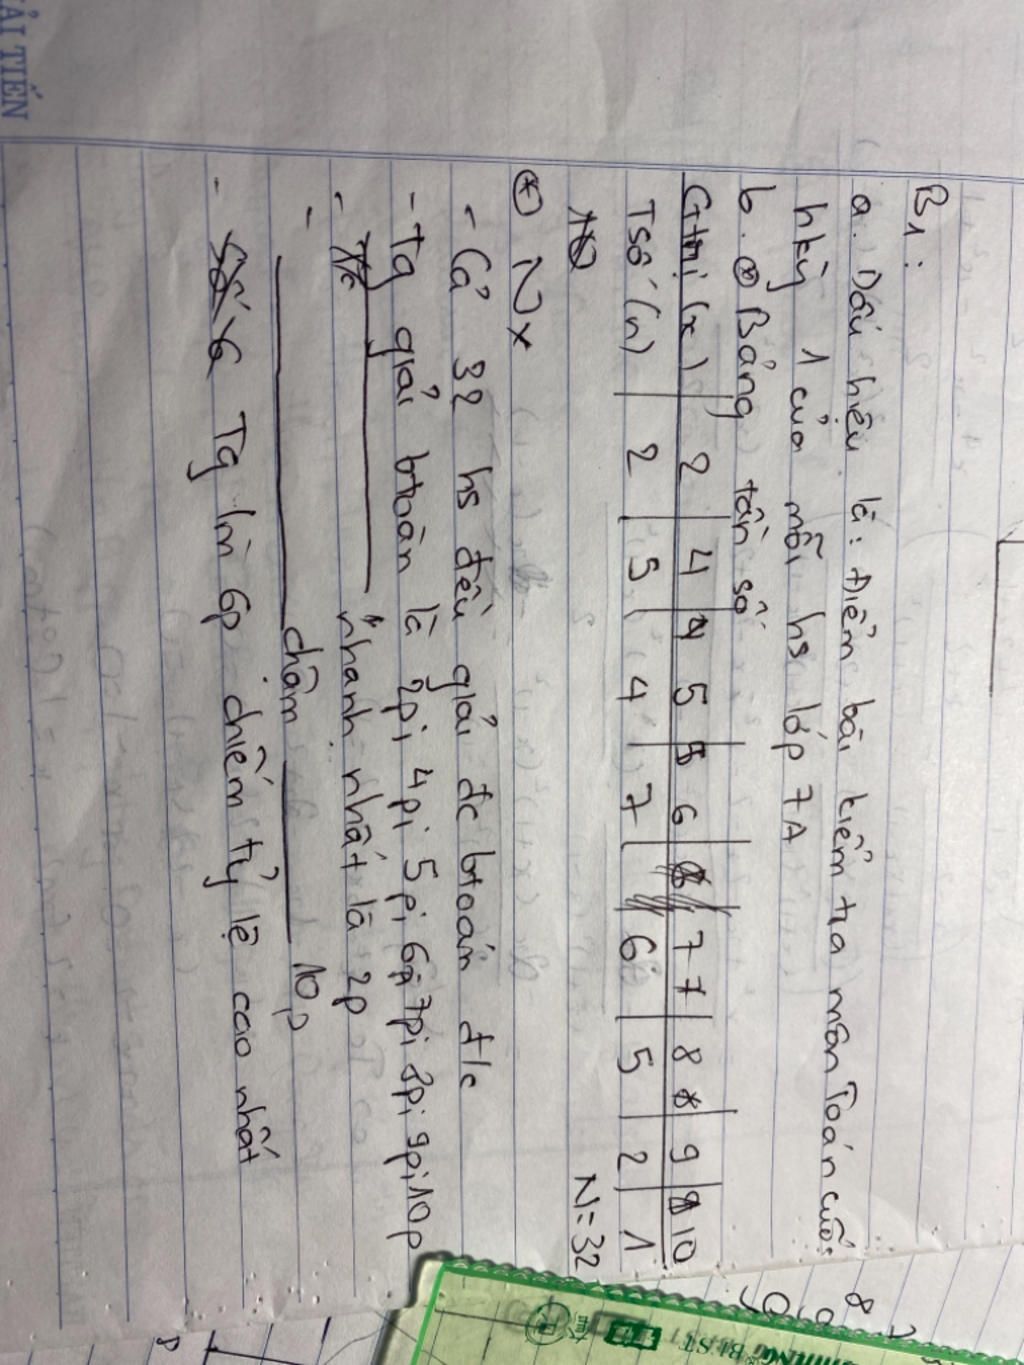 B1:
a. Dấu hiệu là: Điểm bài kiểm tra môn Toán cuối
hkỳ 1 của mỗi hs lớp 7A
b. * Bảng tần số
Gtrị (x) 2 4 5 6 7 8 9 10
Tsố (n) 2 5 4 7 6 5 2 1
N=32
* Nx
- Cả 32 hs đều giải đc btoán đ/c
- Tg giải btoán là 2p; 4p; 5p; 6p; 7p; 8p; 9p; 10p
- nhanh nhất là 2p
- chậm 10p
- Tg là 6p chiếm tỷ lệ cao nhất
ẢI TIẾN
BEST